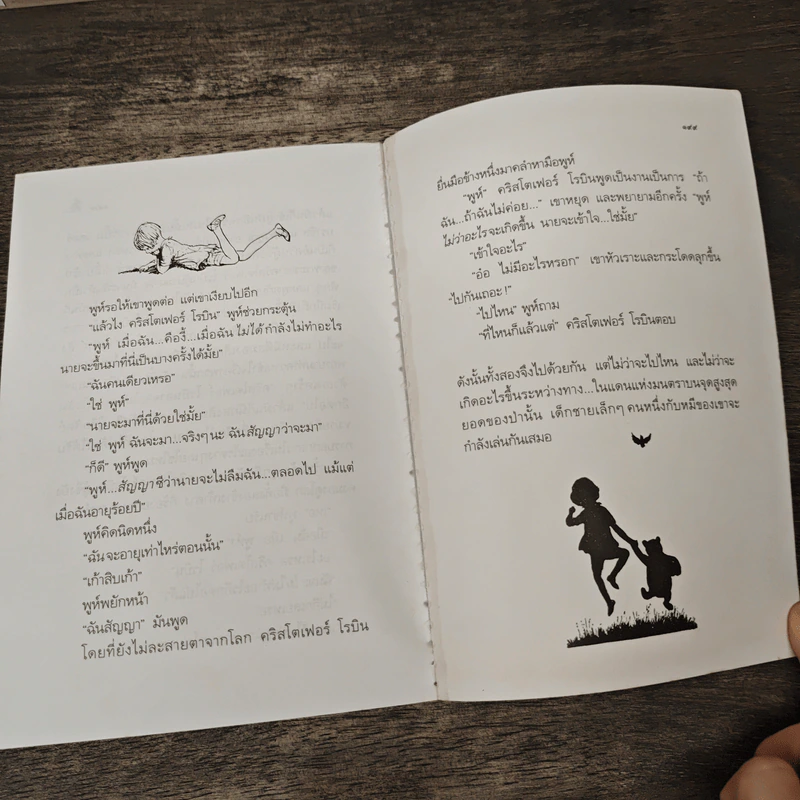 พูห์รอให้เขาพูดต่อ แต่เขาเงียบไปอีก
"แล้วไง คริสโตเฟอร์ โรบิน" พูห์ช่วยกระตุ้น
"พูห์ เมื่อฉัน...คืองี้...เมื่อฉัน ไม่ได้ กำลังไม่ทำอะไร
นายจะขึ้นมาที่นี่เป็นบางครั้งได้มั้ย"
"ฉันคนเดียวเหรอ"
"ใช่ พูห์"
"นายจะมาที่นี่ด้วยใช่มั้ย"
"ใช่ พูห์ ฉันจะมา...จริงๆ นะ ฉัน สัญญา ว่าจะมา"
"ก็ดี" พูห์พูด
"พูห์...สัญญา ซีว่านายจะไม่ลืมฉัน...ตลอดไป แม้แต่
เมื่อฉันอายุร้อยปี"
พูห์คิดนิดหนึ่ง
"ฉัน จะอายุเท่าไหร่ตอนนั้น"
"เก้าสิบเก้า"
พูห์พยักหน้า
"ฉันสัญญา" มันพูด
โดยที่ยังไม่ละสายตาจากโลก คริสโตเฟอร์ โรบิน
๑๙๙
ยื่นมือข้างหนึ่งมาคลำหามือพูห์
"พูห์" คริสโตเฟอร์ โรบินพูดเป็นงานเป็นการ "ถ้า
ฉัน...ถ้าฉันไม่ค่อย..." เขาหยุด และพยายามอีกครั้ง "พูห์
ไม่ว่าอะไร จะเกิดขึ้น นายจะเข้าใจ...ใช่มั้ย"
"เข้าใจอะไร"
"อ๋อ ไม่มีอะไรหรอก" เขาหัวเราะและกระโดดลุกขึ้น
"ไปกันเถอะ!"
"ไปไหน" พูห์ถาม
"ที่ไหนก็แล้วแต่" คริสโตเฟอร์ โรบินตอบ
ดังนั้นทั้งสองจึงไปด้วยกัน แต่ไม่ว่าจะไปไหน และไม่ว่าจะ
เกิดอะไรขึ้นระหว่างทาง...ในแดนแห่งมนตราบนจุดสูงสุด
ยอดของป่านั้น เด็กชายเล็กๆ คนหนึ่งกับหมีของเขาจะ
กำลังเล่นกันเสมอ